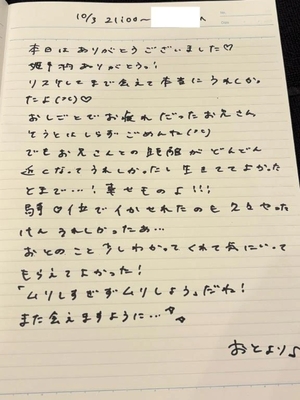 10/3 21:00~
本日はありがとうございました♡
ありがとう。!
リスケしてまで会えて本当にうれしかっ
たよ(°C)♡
おしごとでお疲れだったお兄さん
そうとはしらずごめんね(°C)
でもお兄さんとの距離がどんどん
近くなってうれしかったし生きててよかった
とまで...! 幸せものよ!!!
位でイかせれたのも久々やった
けんうれしかったあ...
おとのこと少しわかってくれて気にいって
もらえてよかった!
「ムリしすぎずムリしよう」だね!
また会えますように...
おとより♪